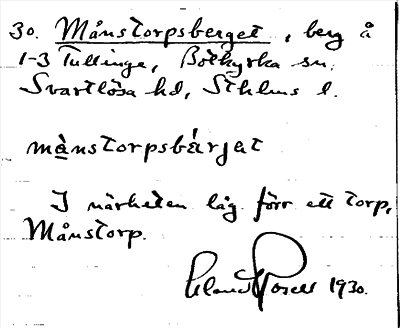 30. Månstorpsberget, berg å
1-3 Tullinge, Botkyrka sn.
Svartlösa hd, Sthlms l.
månstorpsbärjat
I närheten låg förr ett torp,
Månstorp.
1930.